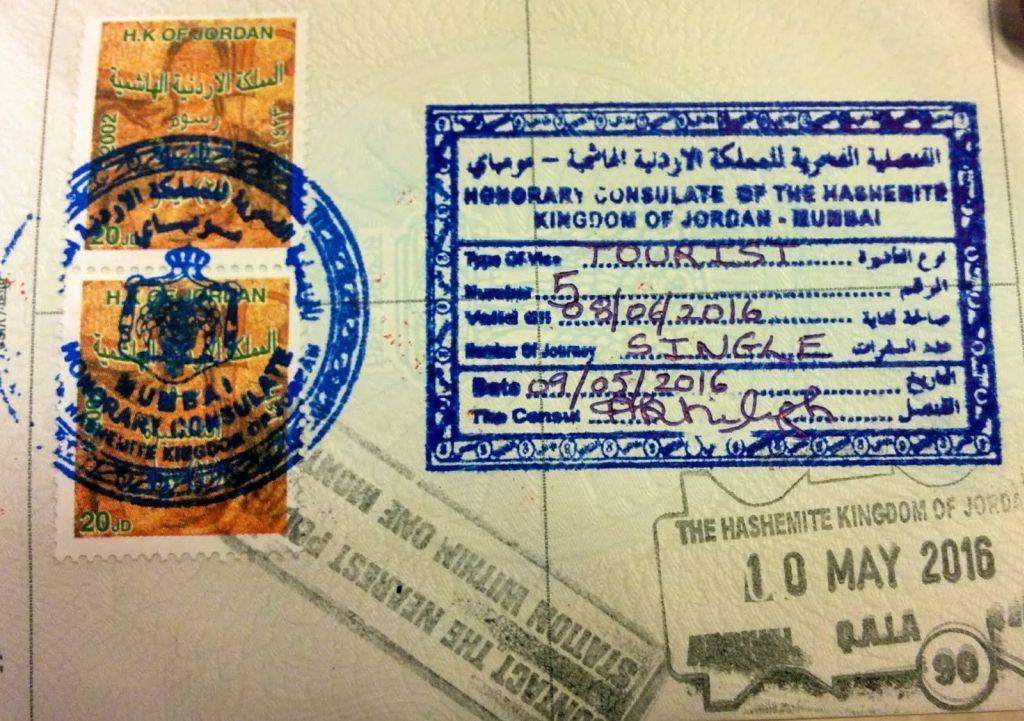 H.K OF JORDAN
المملكة الاردنية الهاشمية
رسوم
2002
20 JD
H.K OF JORDAN
20 JD
مومباي
MUMBAI
HONORARY CONSULATE
HASHEMITE KINGDOM OF
القنصلية الفخرية للمملكة الاردنية الهاشمية - مومباي
HONORARY CONSULATE OF THE HASHEMITE
KINGDOM OF JORDAN - MUMBAI
Type Of Visa TOURIST نوع التأشيرة
Number 5 الرقم
Valid Till 08/06/2016 صالحة لغاية
Number Of Journey SINGLE عدد السفرات
Date 09/05/2016 التاريخ
The Consul القنصل
CONTACT THE NEAREST
STATION WITHIN ONE
THE HASHEMITE KINGDOM OF JORDA
10 MAY 2016
Q.A.I.A
90